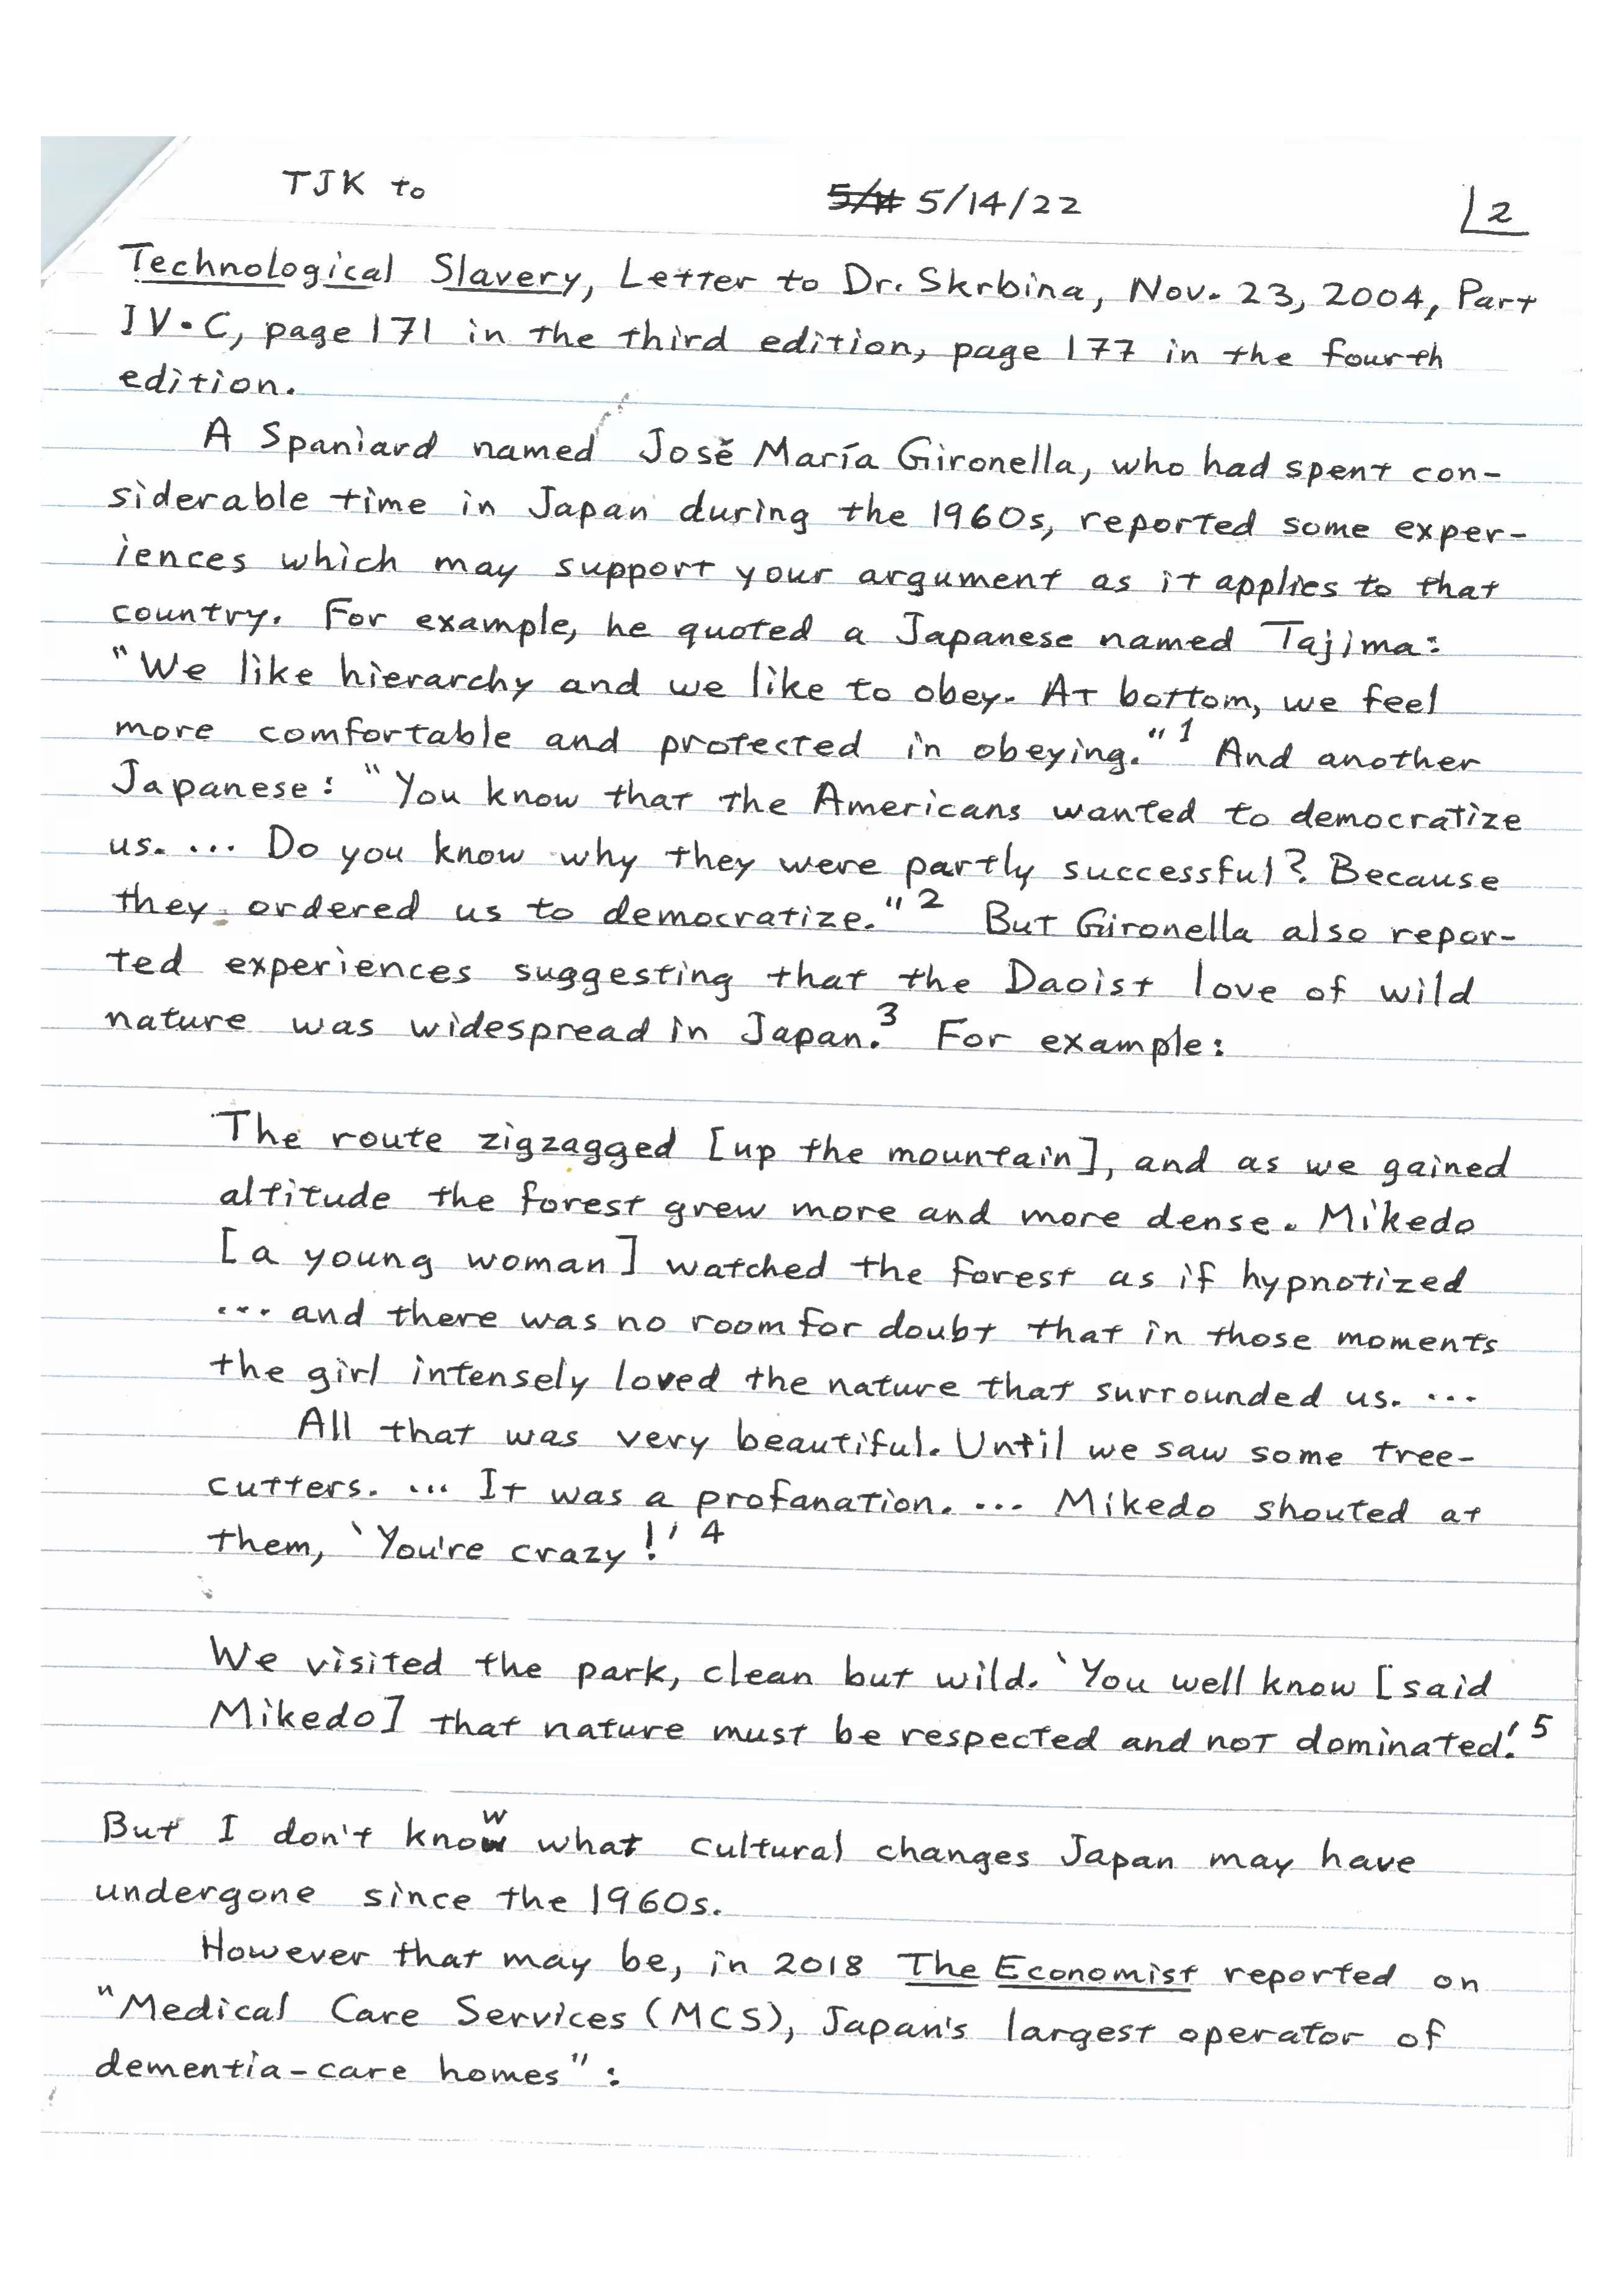 TJK to 5/14/22 2
Technological Slavery, Letter to Dr. Skrbina, Nov. 23, 2004, Part
IV.C, page 171 in the third edition, page 177 in the fourth
edition.
A Spaniard named José María Gironella, who had spent con-
siderable time in Japan during the 1960s, reported some exper-
iences which may support your argument as it applies to that
country. For example, he quoted a Japanese named Tajima:
"We like hierarchy and we like to obey. At bottom, we feel
more comfortable and protected in obeying."1 And another
Japanese: "You know that the Americans wanted to democratize
us. ... Do you know why they were partly successful? Because
they ordered us to democratize."2 But Gironella also repor-
ted experiences suggesting that the Daoist love of wild
nature was widespread in Japan.3 For example:
The route zigzagged [up the mountain], and as we gained
altitude the forest grew more and more dense. Mikedo
[a young woman] watched the forest as if hypnotized
... and there was no room for doubt that in those moments
the girl intensely loved the nature that surrounded us. ...
All that was very beautiful. Until we saw some tree-
cutters. ... It was a profanation. ... Mikedo shouted at
them, 'You're crazy!'4
We visited the park, clean but wild. 'You well know [said
Mikedo] that nature must be respected and not dominated.'5
But I don't know what cultural changes Japan may have
undergone since the 1960s.
However that may be, in 2018 The Economist reported on
"Medical Care Services (MCS), Japan's largest operator of
dementia-care homes":